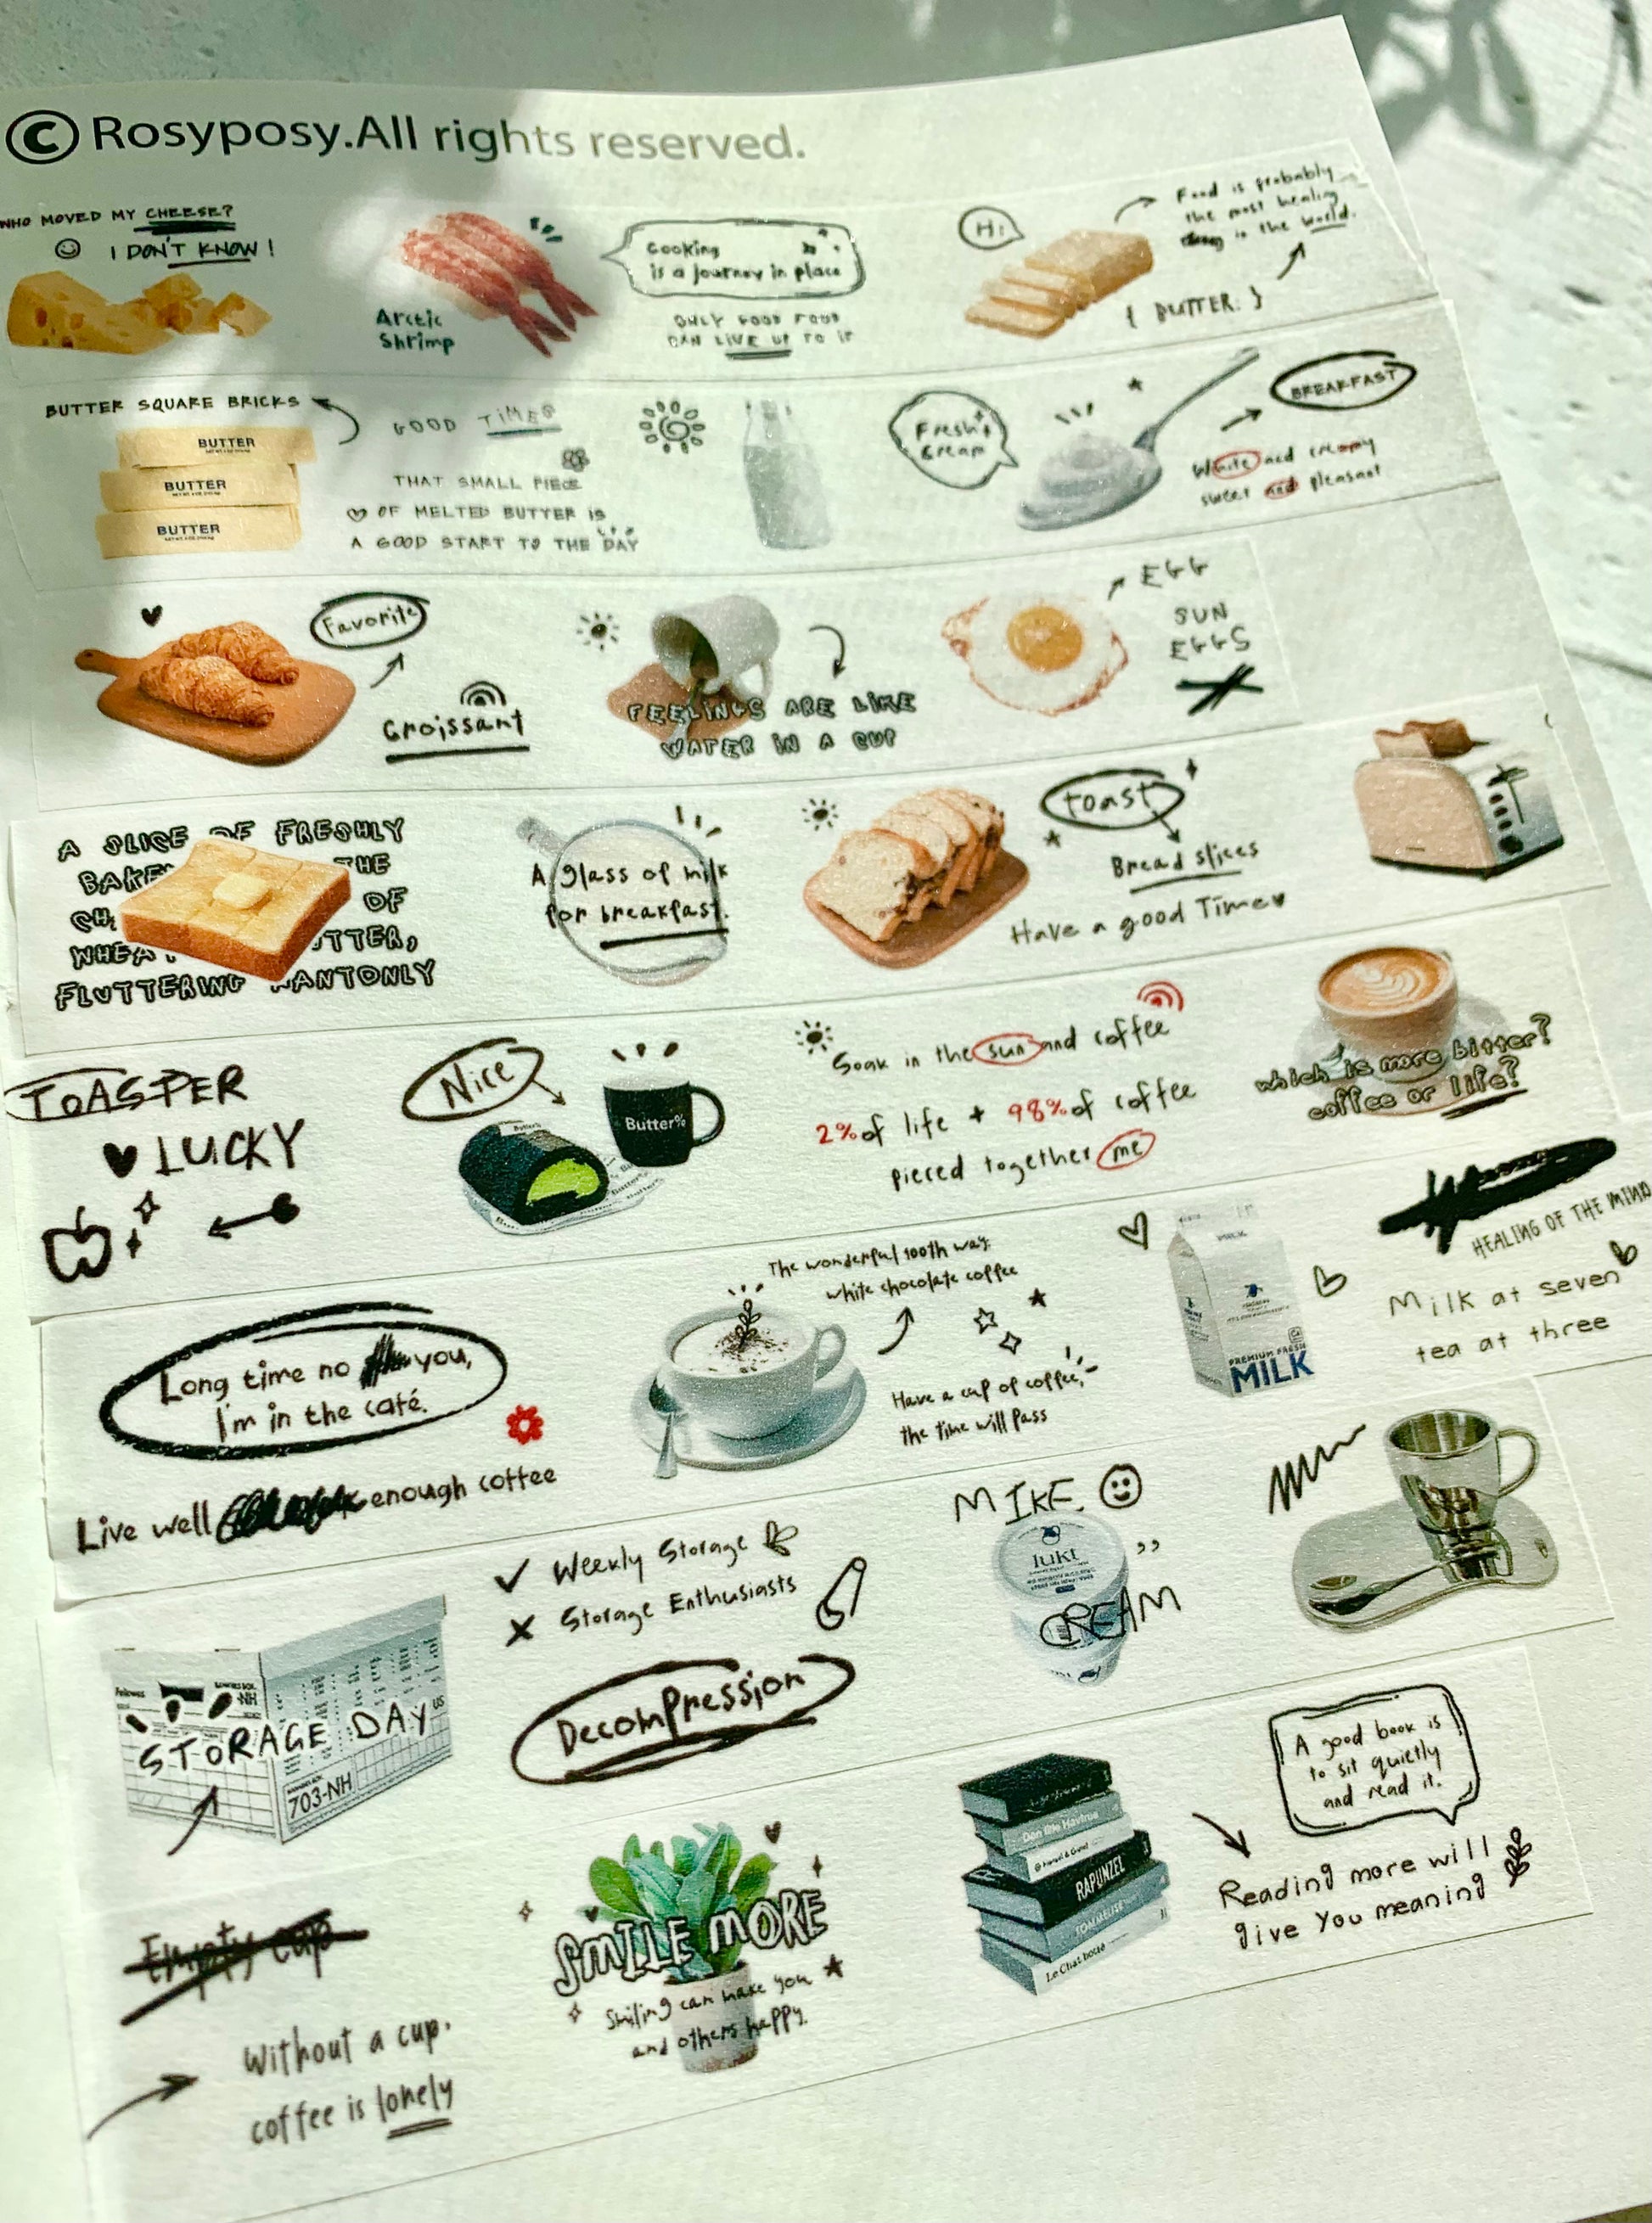 © Rosyposy.All rights reserved.
WHO MOVED MY CHEESE?
I DON'T KNOW !
Arctic
Shrimp
Cooking
is a journey in place
ONLY FOOD FOOD
CAN LIVE UP TO IT
Hi
Food is probably
the most healing
in the world.
{ BUTTER. }
BUTTER SQUARE BRICKS
BUTTER
BUTTER
BUTTER
GOOD TIMES
THAT SMALL PIECE
OF MELTED BUTTER IS
A GOOD START TO THE DAY
Fresh
Cream
BREAKFAST
White and creamy
sweet and pleasant
Favorite
Croissant
FEELINGS ARE LIKE
WATER IN A CUP
EGG
SUN
EGGS
A SLICE OF FRESHLY
BAKE THE
CH OF
WHEA UTTER,
FLUTTERING WANTONLY
A glass of milk
for breakfast.
toast
Bread slices
Have a good Time
TOASPER
LUCKY
Nice
Butter%
Soak in the sun and coffee
2% of life + 98% of coffee
pieced together me
which is more bitter?
coffee or life?
Long time no you,
I'm in the café.
Live well enough coffee
The wonderful 100th way:
white chocolate coffee
Have a cup of coffee,
the time will pass
MILK
PREMIUM FRESH
MILK
HEALING OF THE MIND
Milk at seven
tea at three
STORAGE DAY
Fellowes
703-NH
Weekly Storage
Storage Enthusiasts
Decompression
MIKE.
lukt
CREAM
Empty cup
Without a cup.
coffee is lonely
SMILE MORE
Smiling can make you
and others happy.
RAPUNZEL
TOMMELISE
Le Chat botté
A good book is
to sit quietly
and read it.
Reading more will
give You meaning